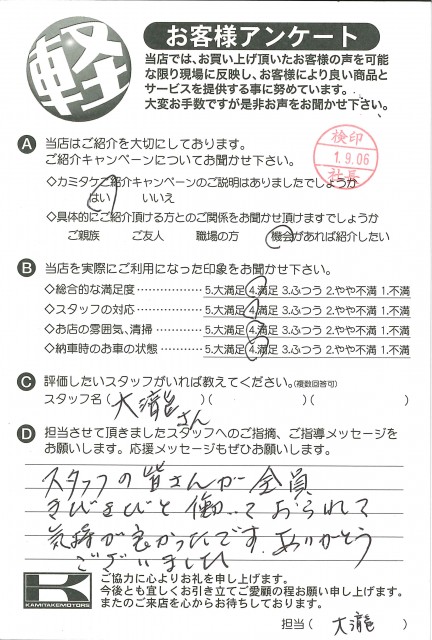 軽
お客様アンケート
当店では、お買い上げ頂いたお客様の声を可能
な限り現場に反映し、お客様により良い商品と
サービスを提供する事に努めています。
大変お手数ですが是非お声をお聞かせ下さい。
A 当店はご紹介を大切にしております。
ご紹介キャンペーンについてお聞かせ下さい。
検印
1.9.06
社長
◇カミタケご紹介キャンペーンのご説明はありましたでしょうか
はい いいえ
◇具体的にご紹介頂ける方とのご関係をお聞かせ頂けますでしょうか
ご親族 ご友人 職場の方 機会があれば紹介したい
B 当店を実際にご利用になった印象をお聞かせ下さい。
◇総合的な満足度 5.大満足 4.満足 3.ふつう 2.やや不満 1.不満
◇スタッフの対応 5.大満足 4.満足 3.ふつう 2.やや不満 1.不満
◇お店の雰囲気、清掃 5.大満足 4.満足 3.ふつう 2.やや不満 1.不満
◇納車時のお車の状態 5.大満足 4.満足 3.ふつう 2.やや不満 1.不満
C 評価したいスタッフがいれば教えてください。(複数回答可)
スタッフ名(大瀧さん)( )( )
D 担当させて頂きましたスタッフへのご指摘、ご指導メッセージを
お願いします。応援メッセージもぜひお願いします。
スタッフの皆さんが全員
きびきびと働いておられて
気持が良かったです。ありがとう
ございました
K
KAMITAKEMOTORS
ご協力に心よりお礼を申し上げます。
今後とも宜しくお引き立てご愛顧の程お願い申し上げます。
またのご来店を心からお待ちしております。
担当(大瀧)